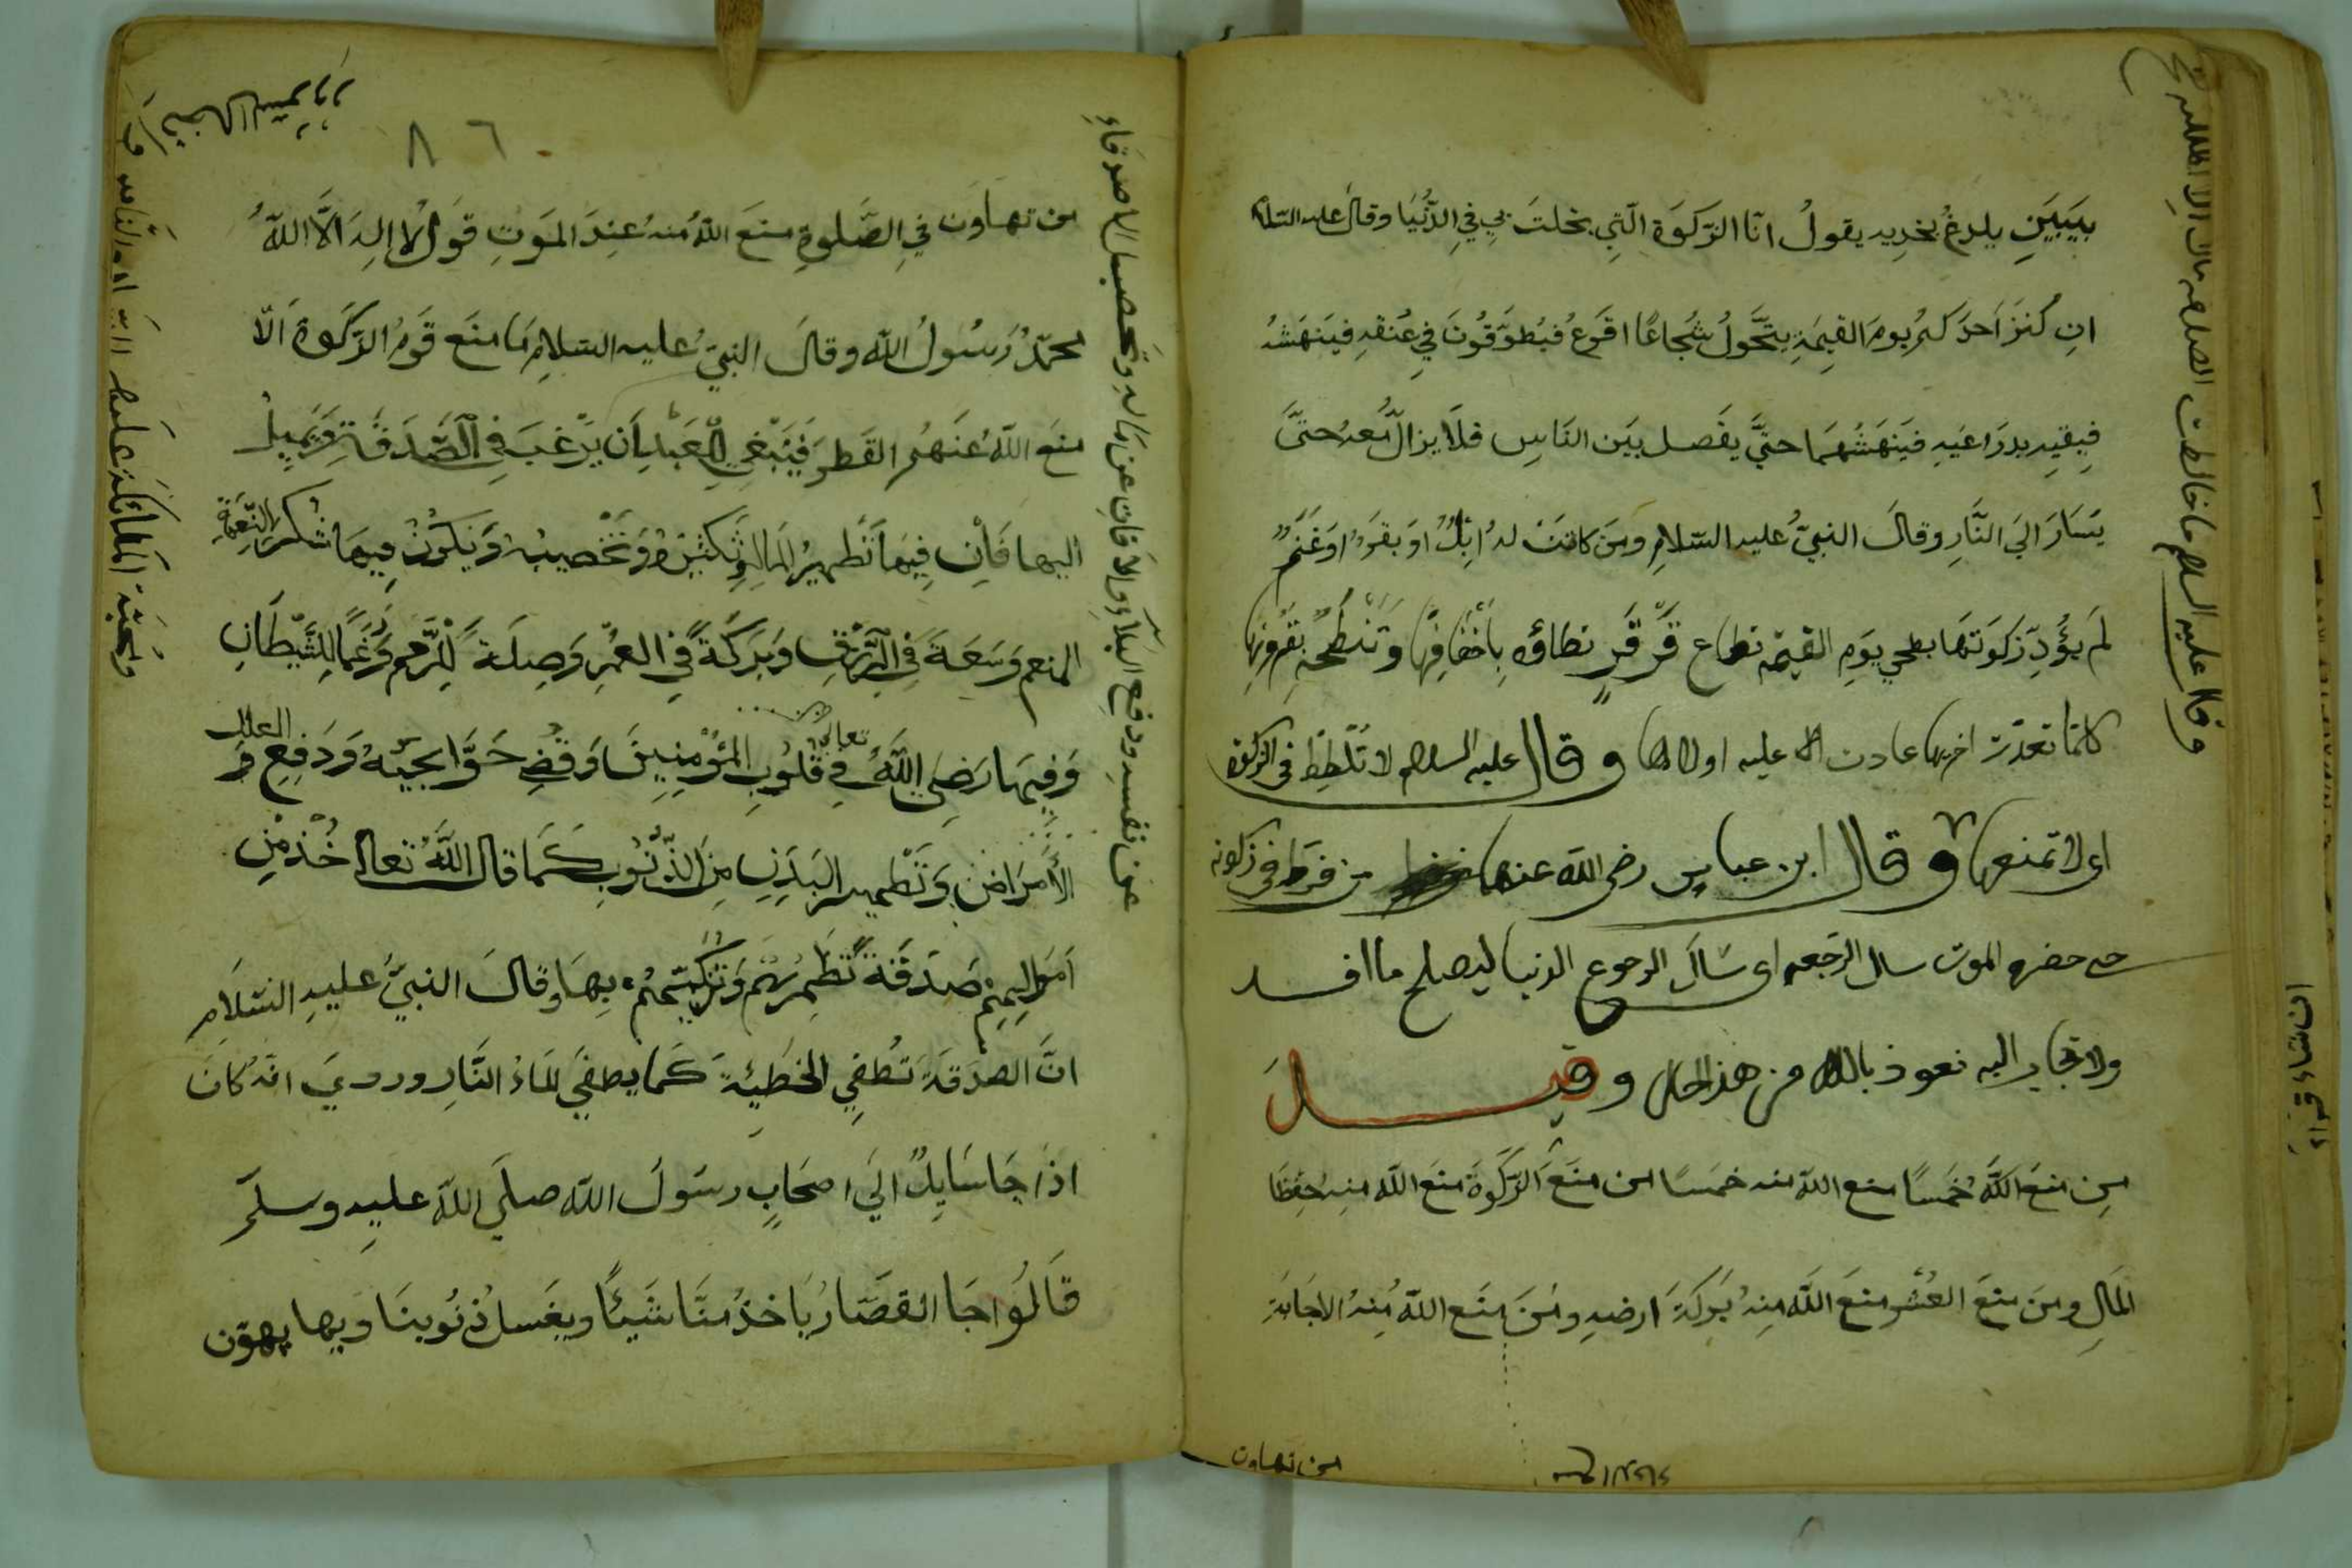 بيبين يلدغ بخديه يقول انا الزكوة التي بخلت بي في الدنيا وقال عليه السلام
ان كنز احدكم يوم القيمة يتحول شجاعا اقرع فيطوقون في عنقه فينهشه
فيقيه بدراعيه فينهشهما حتى يفصل بين الناس فلا يزال معه حتى
يسار الى النار وقال النبي عليه السلام ومن كانت له ابل او بقر او غنم
لم يؤد زكوتها بطحي يوم القيمة بقاع قرقر تطاؤه باخفافها وتنطحه بقرونها
كلما تعدت اخريها عادت عليه اولاها وقال عليه السلام لا تلطط في الزكوة
اى لا تمنعها وقال ابن عباس رضى الله عنهما من فرط في زكوته
حتى حضره الموت سال الرجعة اى سال الرجوع الدنيا ليصلح ما افسد
ولا تجاب اليه نعوذ بالله من هذ الحال وقيل
من منع الله خمسا منع الله منه خمسا من منع الزكوة منع الله منه حفظ
المال ومن منع العشر منع الله منه بركة ارضه ومن منع الله منه الاجابة
من تهاون
وقال عليه السلام ما خالطت الصدقة مالا الا اهلكته
ان شاء قراء
٨٦
من تهاون في الصلوة منع الله منه عند الموت قول لا اله الا الله
محمد رسول الله وقال النبي عليه السلام ما منع قوم الزكوة الا
منع الله عنهم القطر فينبغي للعبد ان يرغب في الصدقة ويميل
اليها فان فيها تطهير المال وتكثيره وتخصيبه ويكون فيها شكر النعمة
المنعم وسعة في الرزق وبركة في العمر وصلة للرحم ورغما للشيطان
وفيها رضى الله تعالى في قلوب المؤمنين وقضى حوايجه ودفع العلل و
الأمراض وتطهير البدن من الذنوب كما قال الله تعالى خذ من
اموالهم صدقة تطهرهم وتزكيهم بها وقال النبي عليه السلام
ان الصدقة تطفي الخطيئة كما يطفى الماء النار وروي انه كان
اذا جا سايل الى اصحاب رسول الله صلى الله عليه وسلم
قالوا جا القصار ياخذ منا شيئا ويغسل ذنوبنا وبها يهون
عن نفسه ودفع البلاء والافات عن ماله وتحصيل
ومحبة الملائكة عليه